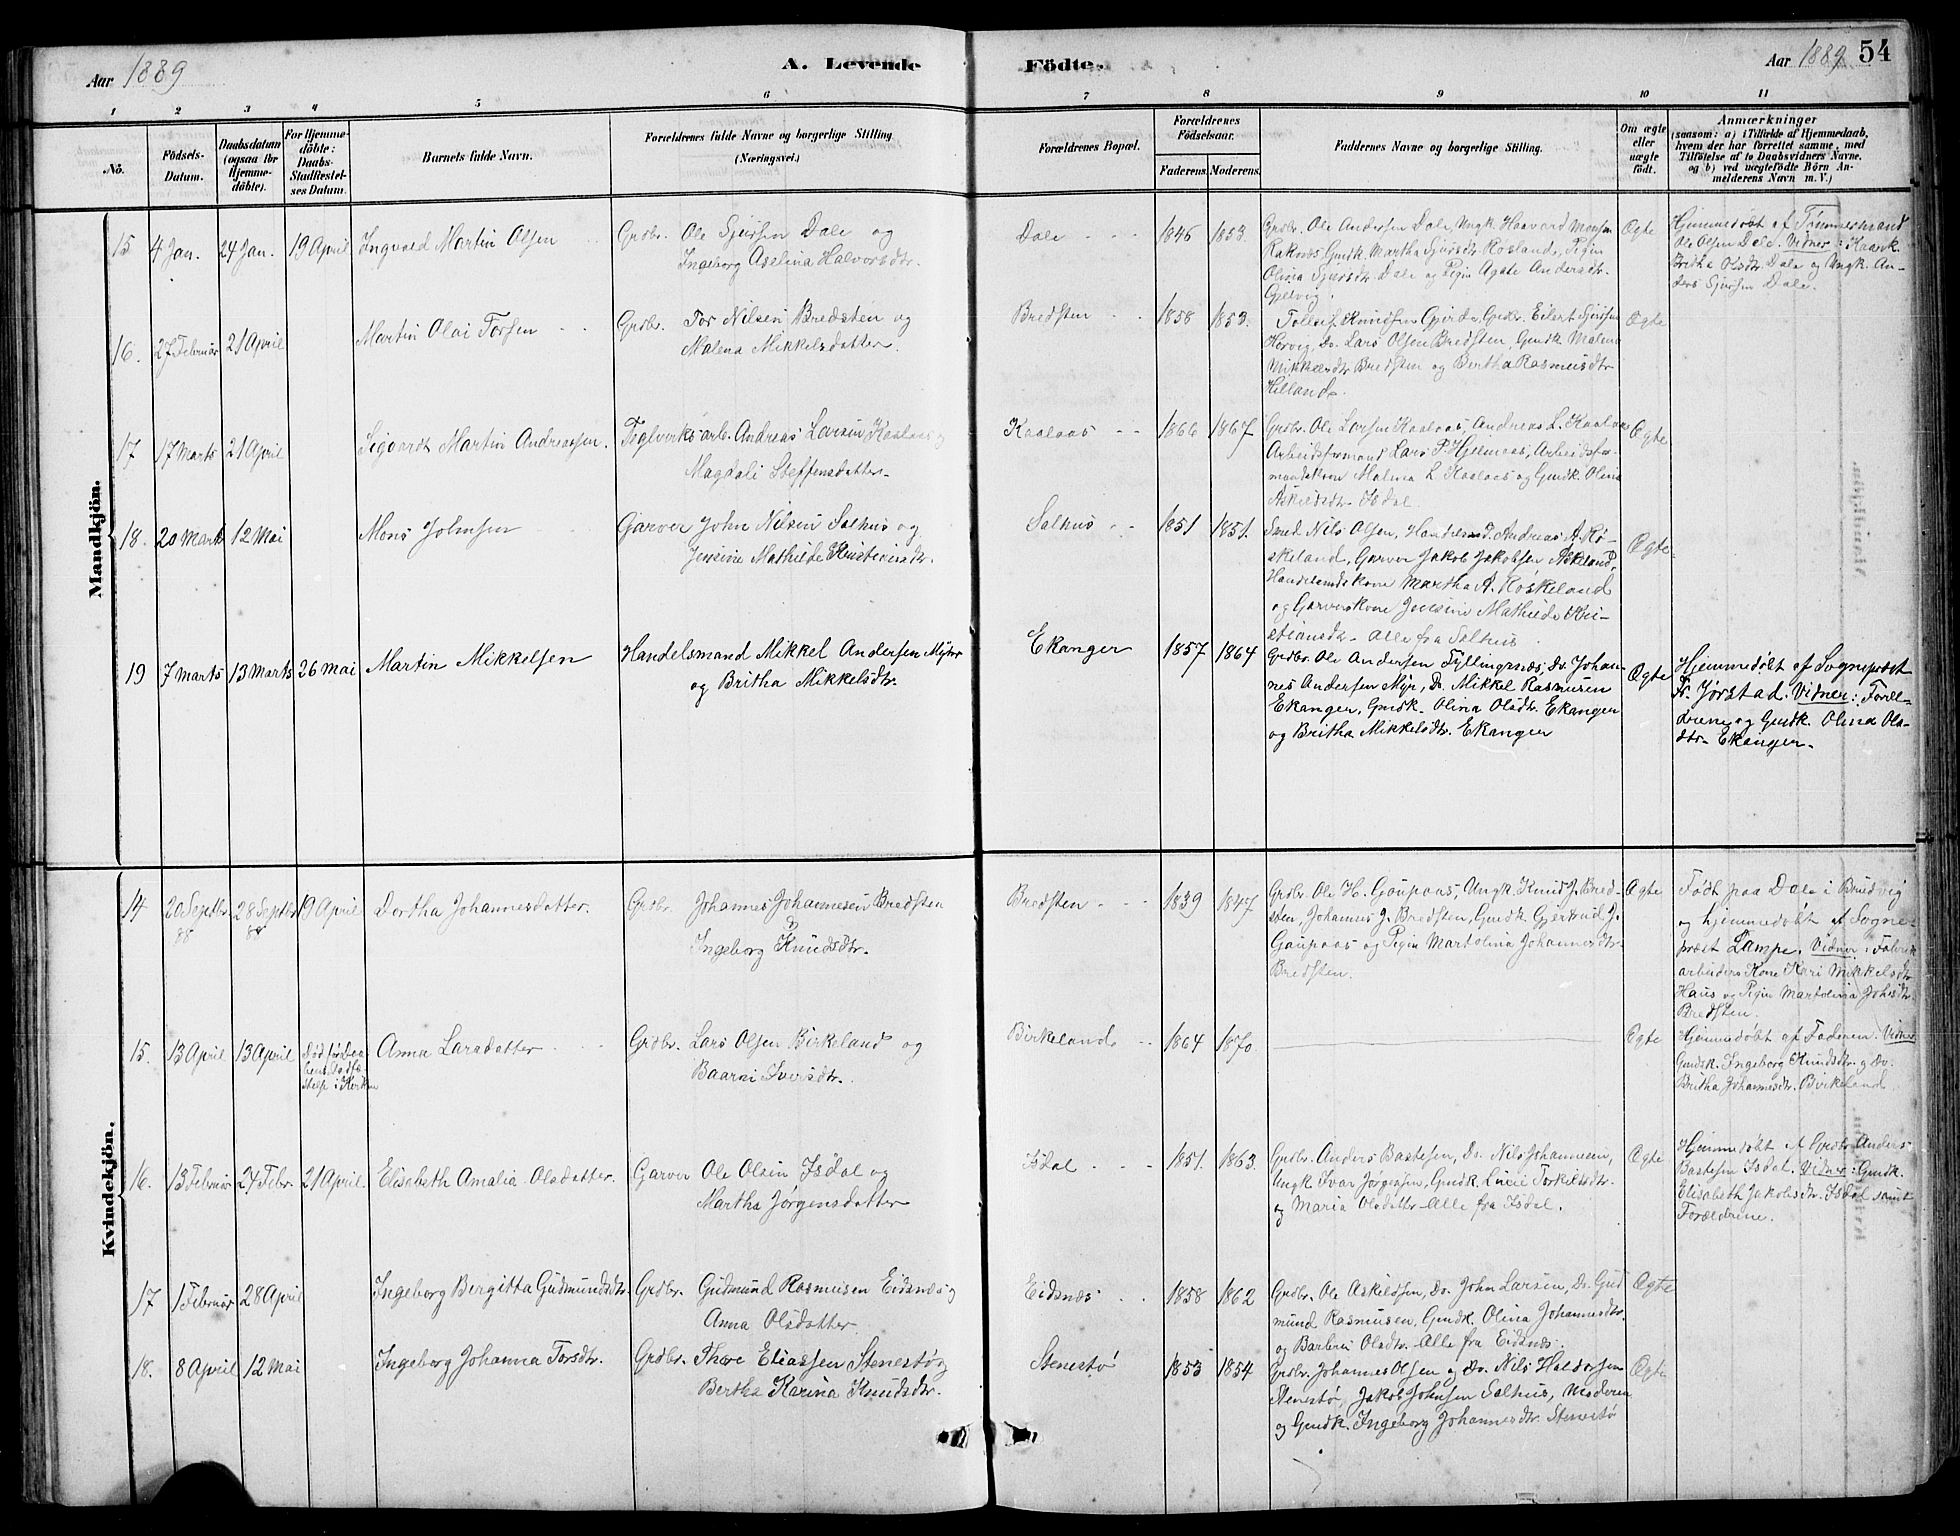 Aar 1889
A. Levende Födte.
Aar 1889 54
1 2 3 4 5 6 7 8 9 10 11
No.
Födsels-Datum.
Daabsdatum (ogsaa for Hjemme-döbte).
For Hjemme-döbte: Daabs-Stadfæstelses Datum.
Barnets fulde Navn.
Forældrenes fulde Navne og borgerlige Stilling. (Næringsvei.)
Forældrenes Bopæl.
Forældrenes Födselsaar.
Faderens. Moderens.
Faddernes Navne og borgerlige Stilling.
Om ægte eller uægte födt.
Anmærkninger
(saasom: a) i Tilfælde af Hjemmedaab, hvem der har forrettet samme, med Tilföielse af to Daabsvidners Navne, og b) ved uægtefödte Börn Anmelderens Navn m. V.)
Mandkjön.
15 4 Jan. 24 Jan. 19 April Ingvald Martin Olsen
Grdbr. Ole Sjursen Dale og
Ingeborg Aselina Halvorsdtr.
Dale 1846 1853.
Grdbr. Ole Andersen Dale, Ungk. Haavard Monsen
Raknes, Gmdk. Martha Sjursdtr. Rosland, Pigen
Olina Sjursdtr. Dale og Pigen Agate Andersdtr.
Gjelvig.
Ægte
Hjemmedøbt af Tømmermand
Ole Olsen Dale. Vidner: Haavk.
Britha Olsdtr. Dale og Ungk. An-
ders Sjursen Dale.
16. 27 Februar 21 April Martin Olai Torsen
Grdbr. Tor Nilsen Bredsten og
Malena Mikkelsdatter.
Bredsten 1858 1853.
Tolleif Knudsen Gjerde, Grdbr. Eilert Sjursen
Hervig, Do. Lars Olsen Bredsten, Gmdk. Malena
Mikkelsdtr. Bredsten og Bertha Rasmusdtr.
Helland.
Ægte
17 17 Marts 21 April Sigvardt Martin Andreassen.
Teglverksarb. Andreas Larsen Kaalaas og
Magdali Steffensdatter
Kaalaas 1866 1867
Grdbr. Ole Larsen Kaalaas, Andreas L. Kaalaas
Arbeidsformand Lars P. Hjelmaas, Arbeidsfor-
mandskone Malina L Kaalaas og Gmdk. Olina
Askeldsdtr. Isdal.
Ægte
18. 20 Marts 12 Mai Mons Johnsen
Garver John Nilsen Salhus og
Jensine Mathilde Kristensdtr.
Salhus 1851 1851.
Smed Nils Olsen, Handelsmd. Andreas A. Rø-
skeland, Garver Jakob Jakobsen Askeland,
Handelsmdskone Martha A. Røskeland
og Garverskone Jensine Mathilde Kri-
stiansdtr. Alle fra Salhus.
Ægte
19 7 Marts 13 Marts 26 Mai Martin Mikkelsen
Handelsmand Mikkel Andersen Myhr
og Britha Mikkelsdtr.
Ekanger 1857 1864
Grdbr. Ole Andersen Fyllingsnæs, Do. Johan-
nes Andersen Myr, Do. Mikkel Rasmusen
Ekanger, Gmdk. Olina Olsdtr. Ekanger
og Britha Mikkelsdtr. Ekanger
Ægte
Hjemmedøbt af Sognepræst
Fr. Jørstad. Vidner: Foræl-
drene og Gmdk. Olina Ols-
dtr. Ekanger.
Kvindekjön.
14 20 Septbr. 88 28 Septbr. 88 19 April Dortha Johannesdatter.
Grdbr. Johannes Johannesen Bredsten
og
Ingeborg Knudsdtr.
Bredsten 1839 1847
Grdbr. Ole H. Gaupaas, Ungk. Knud J. Bred-
sten, Johannes J. Bredsten, Gmdk. Gjertrud J.
Gaupaas og Pigen Martolina Johannesdtr.
Bredsten.
Ægte
Født paa Dale i Bruvig
og hjemmedøbt af Sogne-
præst Lampe. Vidner: Fabrik
arbeiders Kone Kari Mikkelsdtr.
Haus og Pigen Martolina Johsdtr.
Bredsten.
15. 13 April 13 April Anna Larsdatter
Grdbr. Lars Olsen Birkeland og
Baarni Iversdtr.
Birkeland 1864 1870
Ægte
Hjemmedøbt af Faderen. Vidner
Gmdsk. Ingeborg Knudsdtr. og Do.
Britha Johannesdtr. Birkeland.
16. 13 Februar 24 Febr. 21 April. Elisabeth Amalia Olsdatter.
Garver Ole Olsen Isdal og
Martha Jørgensdatter
Isdal 1851. 1863.
Grdbr. Anders Bastesen, Do. Nils Johannesen,
Ungk. Ivar Jørgensen, Gmdk. Lucie Torkelsdtr.
og Maria Olsdatter - Alle fra Isdal.
Ægte
Hjemmedøbt af Grdbr. Anders
Bastesen Isdal. Vidner: Gmdk.
Elisabeth Jakobsdtr. Isdal samt
Forældrene.
17 1 Februar 28 April Ingeborg Bergitta Gudmundsdtr.
Grdbr. Gudmund Rasmusen Eidsnæs og
Anna Olsdatter.
Eidsnæs 1858 1862
Grdbr. Ole Askeldsen, Do. John Larsen, Do. Gud
mund Rasmusen, Gmdk. Olina Johannesdtr.
og Barbro Olsdtr. Alle fra Eidsnæs.
Ægte
18. 8 April 12 Mai Ingeborg Johanna Torsdtr.
Grdbr. Thore Eliassen Stenestø og
Bertha Karina Knudsdtr.
Stenestø 1853 1854
Grdbr. Johannes Olsen og Do. Nils Haldorsen
Stenestø, Jakob Johnsen Salhus, Moderen
og Gmdk. Ingeborg Johannesdtr. Stenestø
Ægte